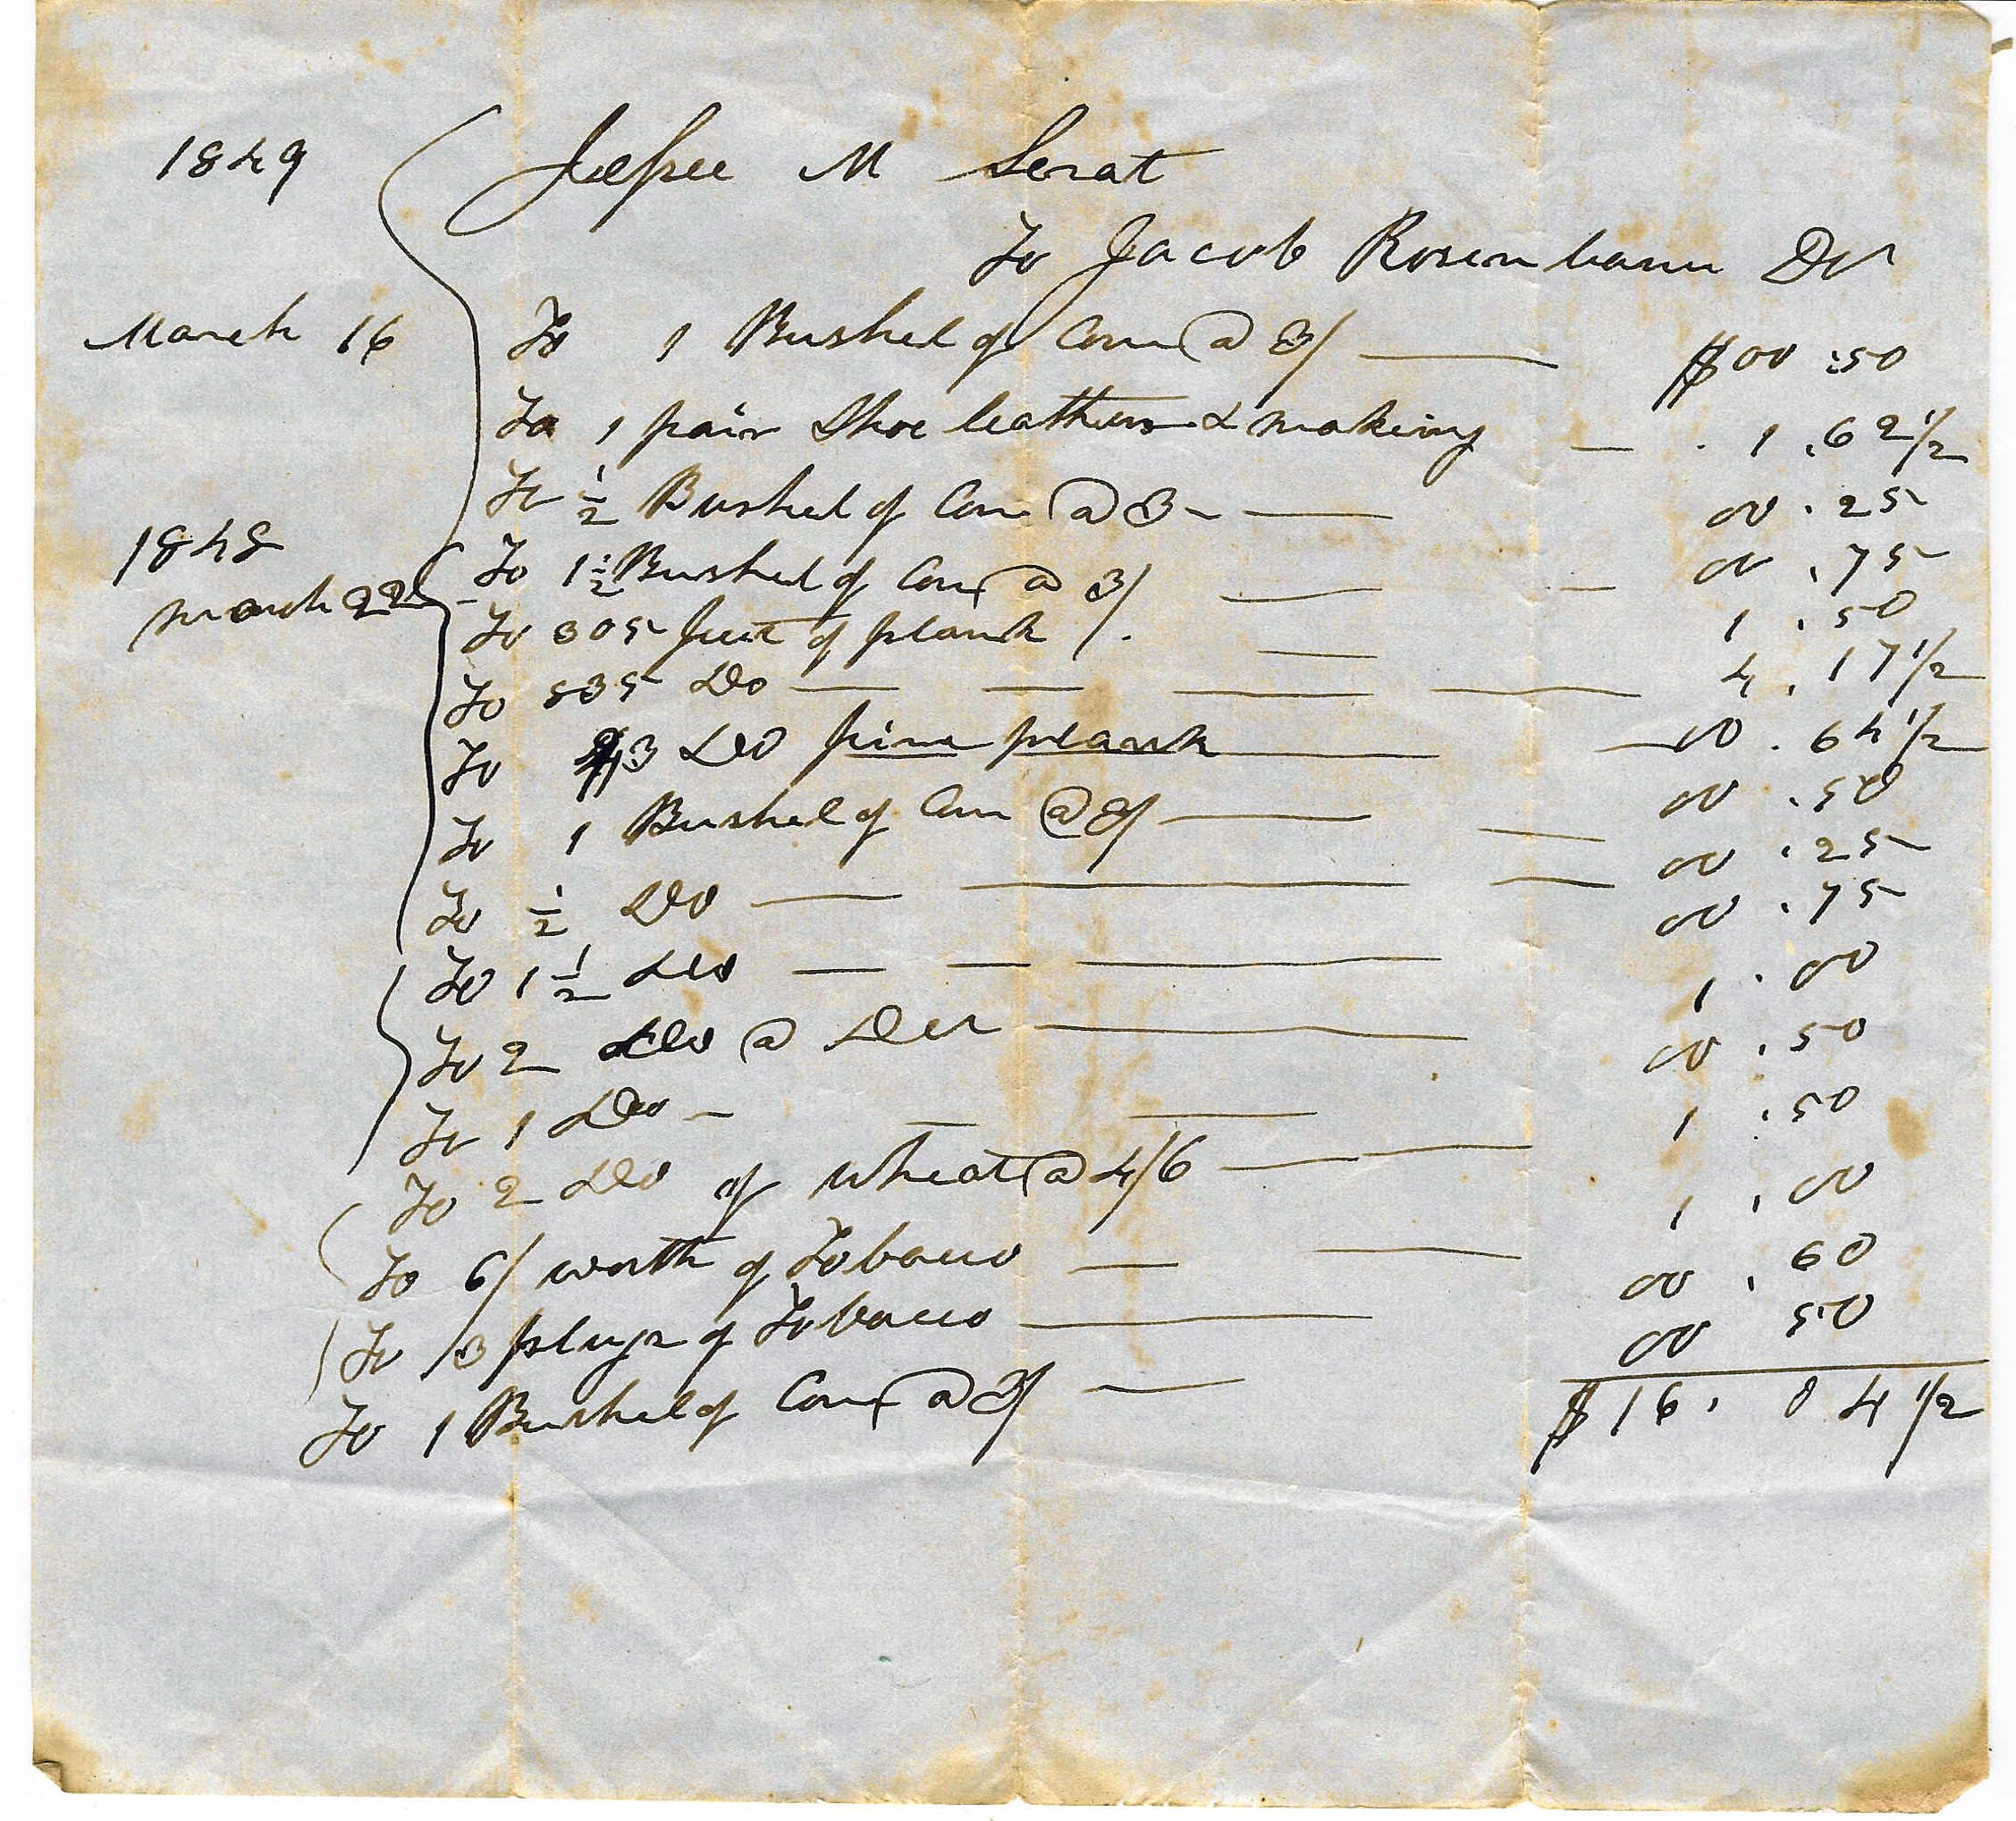 1849 Jessee M Serat
To Jacob Rosenbaum Dr
March 16 To 1 Bushel of Corn @ 3/ — $00.50
To 1 pair Shoe leathers & making — 1.62 1/2
To 1/2 Bushel of Corn @ 3 — 00.25
1848
March 22 To 1 1/2 Bushel of Corn @ 3/ — 00.75
To 305 feet of plank /. — 1.50
To 535 Do — 4.17 1/2
To 43 Do pine plank — 00.64 1/2
To 1 Bushel of Corn @ 3/ — 00.50
To 1/2 Do — 00.25
To 1 1/2 Do — 00.75
To 2 Do @ Do — 1.00
To 1 Do — 00.50
To 2 Do of Wheat @ 4/6 — 1.50
To 6/ worth of Tobacco — 1.00
To 3 plugs of Tobacco — 00.60
To 1 Bushel of Corn @ 3/ — 00 50
$16.04 1/2